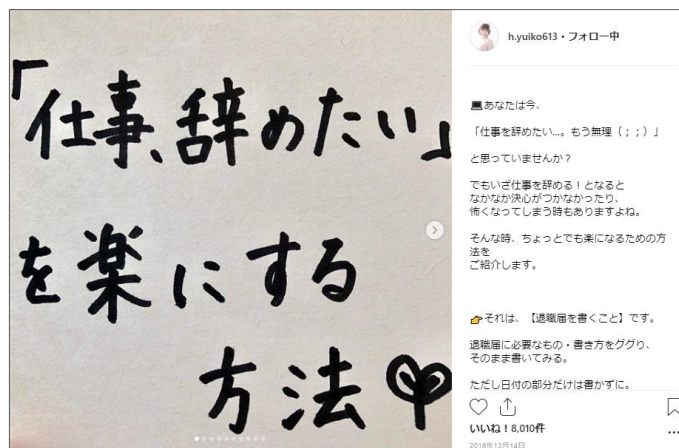 「仕事、辞めたい」
を楽にする
方法
h.yuiko613・フォロー中
💻あなたは今、
「仕事を辞めたい...。もう無理（；；）」
と思っていませんか？
でもいざ仕事を辞める！となると
なかなか決心がつかなかったり、
怖くなってしまう時もありますよね。
そんな時、ちょっとでも楽になるための方
法を
ご紹介します。
👉それは、【退職届を書くこと】です。
退職届に必要なもの・書き方をググり、
そのまま書いてみる。
ただし日付の部分だけは書かずに。
いいね！8,010件
2018年12月14日